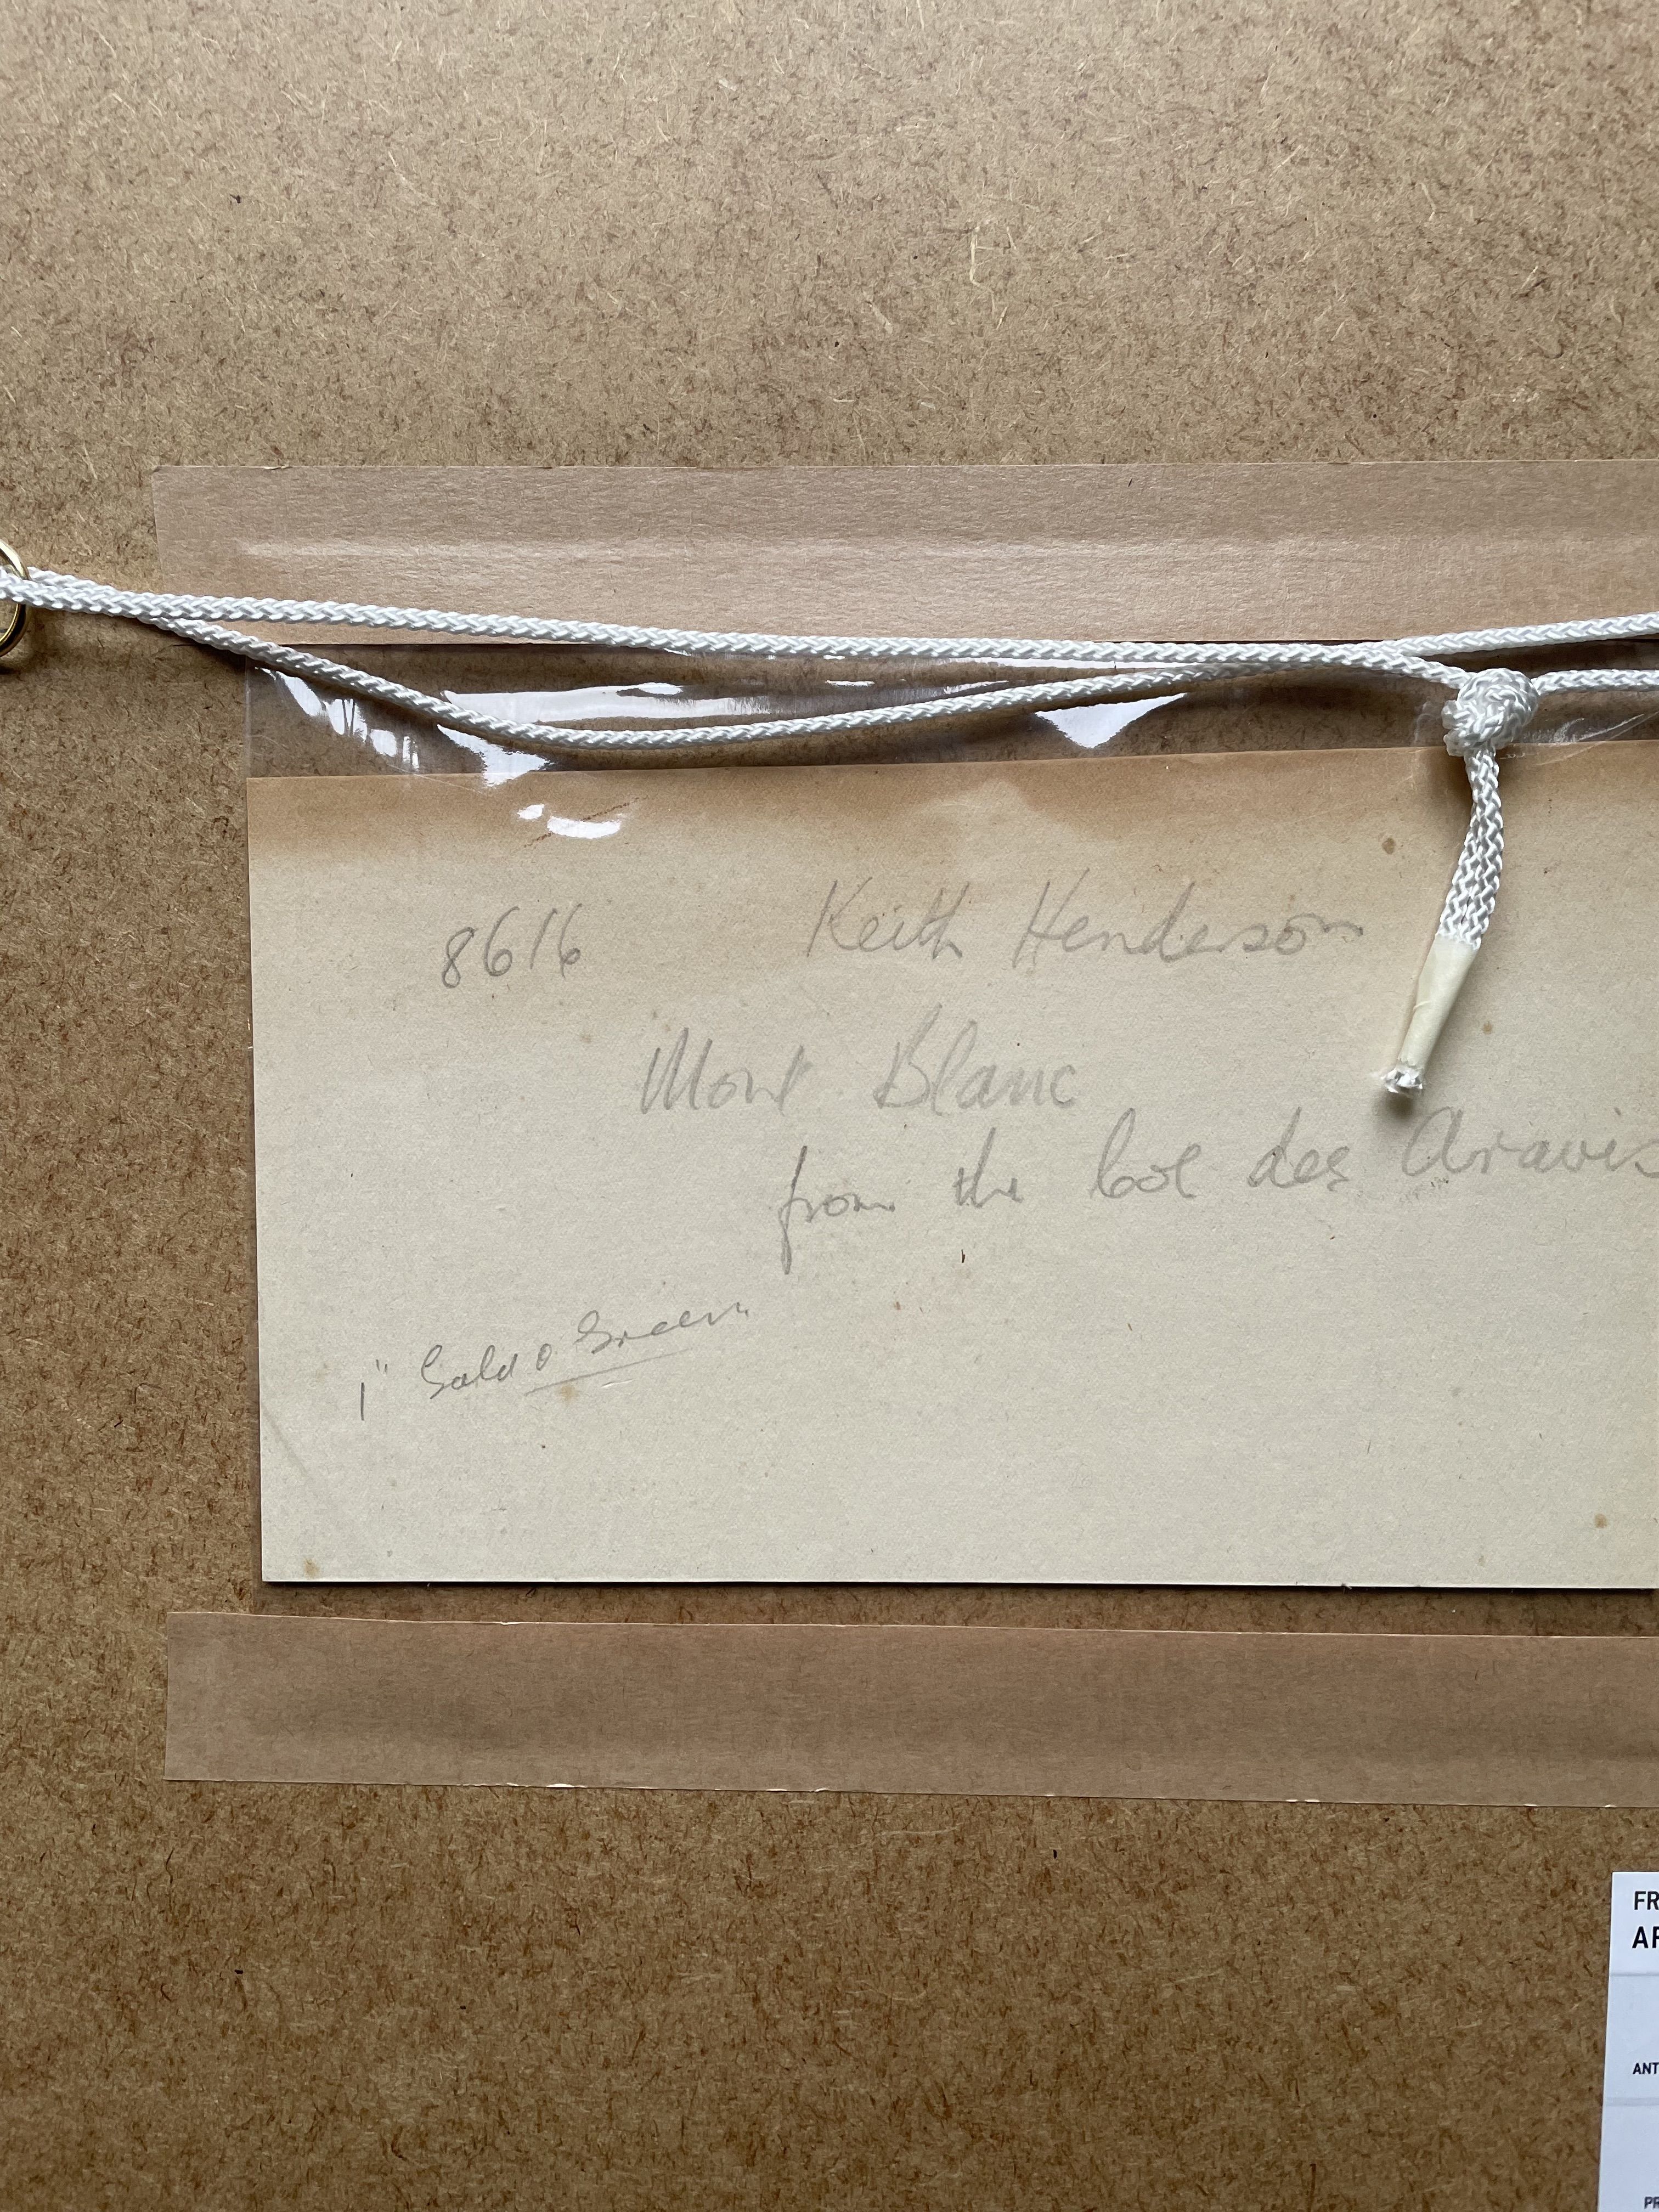 8616 Keith Henderson
Mont Blanc
from the Col des Aravis
1" Gold & Green
FR
AF
ANT
PR